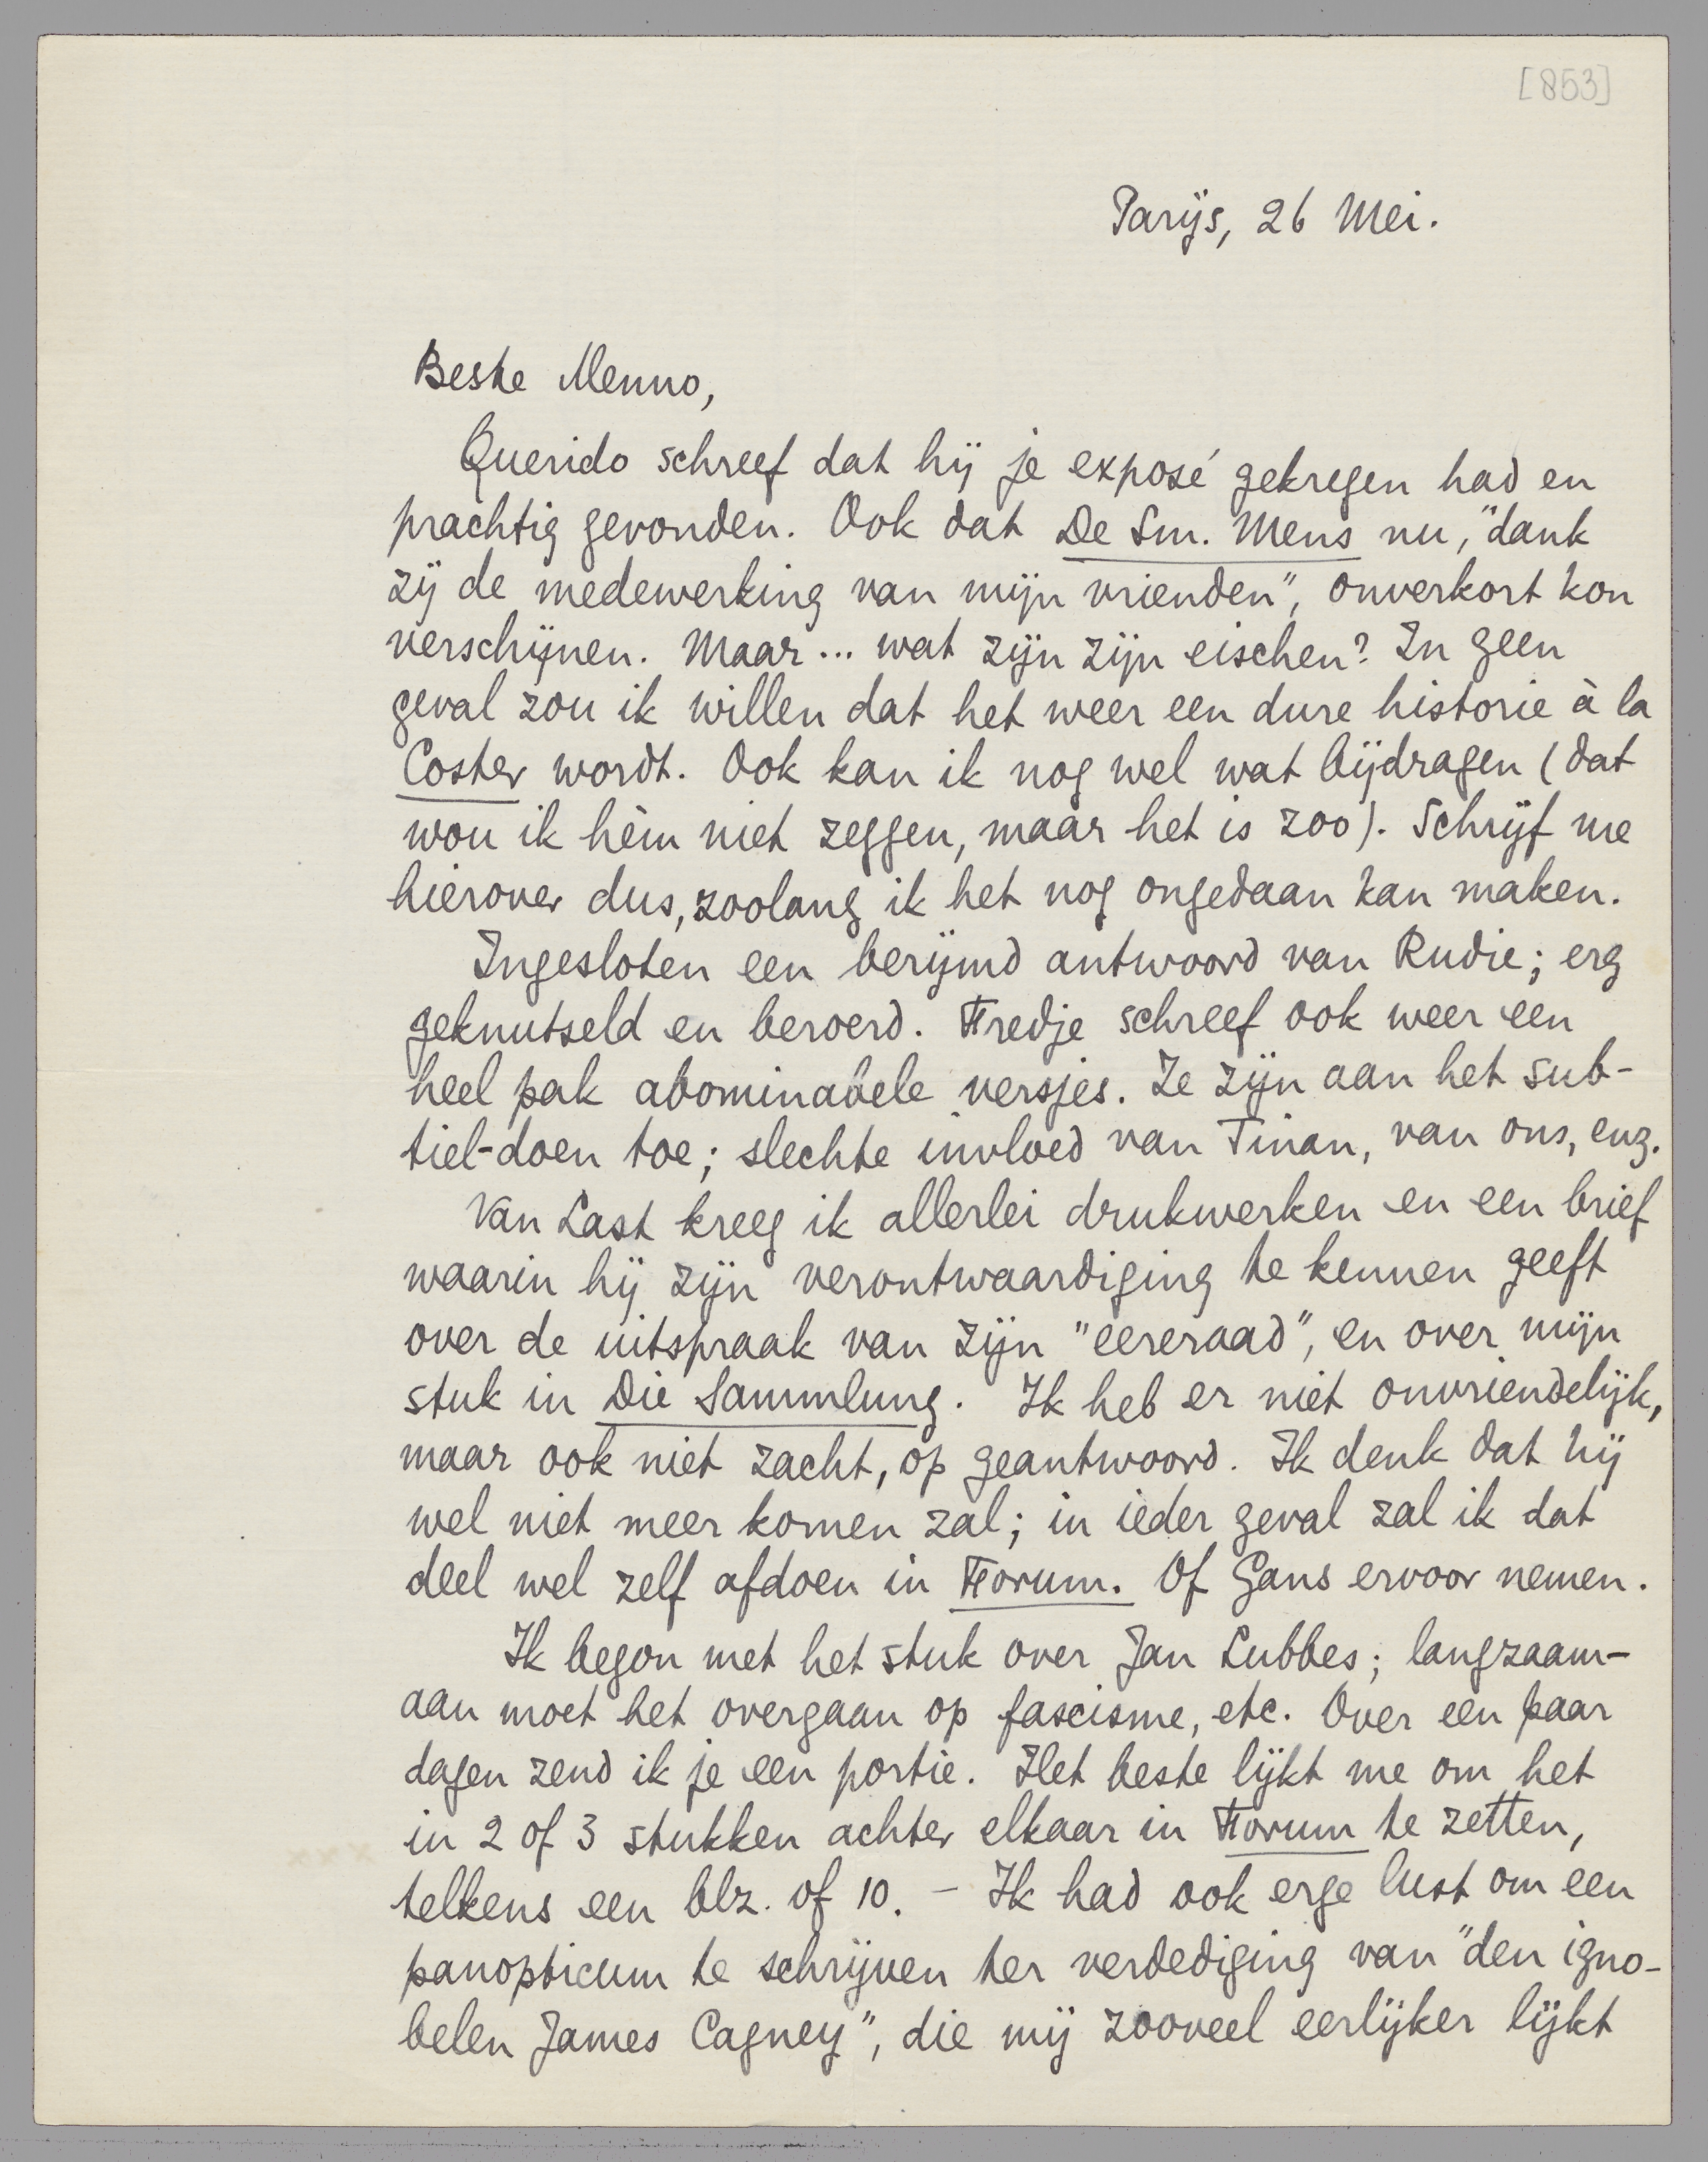 [853]
Parijs, 26 Mei.
Beste Menno,
Querido schreef dat hij je exposé gekregen had en
prachtig gevonden. Ook dat De Sm. Mens nu, "dank
zij de medewerking van mijn vrienden", onverkort kon
verschijnen. Maar... wat zijn zijn eischen? In geen
geval zou ik willen dat het weer een dure historie à la
Coster wordt. Ook kan ik nog wel wat bijdragen (dat
wou ik hèm niet zeggen, maar het is zoo). Schrijf me
hierover dus, zoolang ik het nog ongedaan kan maken.
Ingesloten een berijmd antwoord van Rudie; erg
geknutseld en beroerd. Fredje schreef ook weer een
heel pak abominabele versjes. Ze zijn aan het sub-
tiel-doen toe; slechte invloed van Tinan, van ons, enz.
Van Last kreeg ik allerlei drukwerken en een brief
waarin hij zijn verontwaardiging te kennen geeft
over de uitspraak van zijn "eereraad", en over mijn
stuk in Die Sammlung. Ik heb er niet onvriendelijk,
maar ook niet zacht, op geantwoord. Ik denk dat hij
wel niet meer komen zal; in ieder geval zal ik dat
deel wel zelf afdoen in Forum. Of Gans ervoor nemen.
Ik begon met het stuk over Jan Lubbes; langzaam-
aan moet het overgaan op fascisme, etc. Over een paar
dagen zend ik je een portie. Het beste lijkt me om het
in 2 of 3 stukken achter elkaar in Forum te zetten,
telkens een blz. of 10. – Ik had ook erge lust om een
panopticum te schrijven ter verdediging van "den igno-
belen James Cagney", die mij zooveel eerlijker lijkt